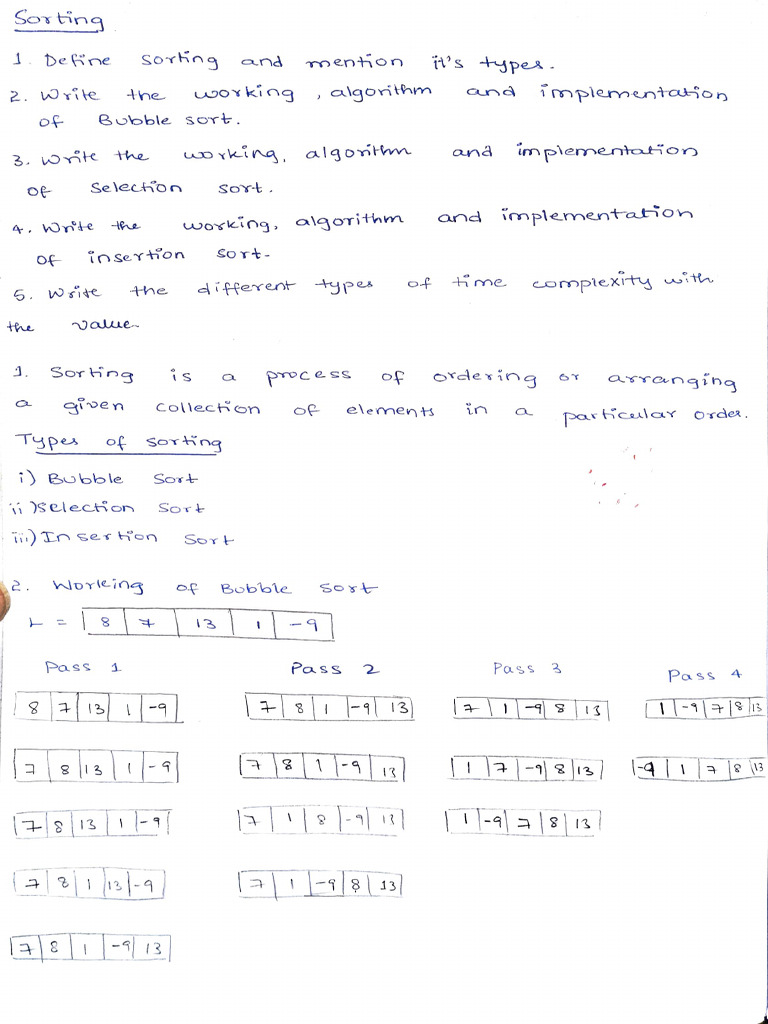 Sorting
1. Define sorting and mention it's types.
2. Write the working, algorithm and implementation
of Bubble sort.
3. Write the working, algorithm and implementation
of selection sort.
4. Write the working, algorithm and implementation
of insertion sort.
5. Write the different types of time complexity with
the value.
1. Sorting is a process of ordering or arranging
a given collection of elements in a particular order.
Types of sorting
i) Bubble sort
ii) Selection sort
iii) Insertion sort
2. Working of Bubble sort
L = 8 7 13 1 -9
Pass 1 Pass 2 Pass 3 Pass 4
8 7 13 1 -9 7 8 1 -9 13 7 1 -9 8 13 1 -9 7 8 13
7 8 13 1 -9 7 8 1 -9 13 1 7 -9 8 13 -9 1 7 8 13
7 8 13 1 -9 7 1 8 -9 13 1 -9 7 8 13
7 8 1 13 -9 7 1 -9 8 13
7 8 1 -9 13